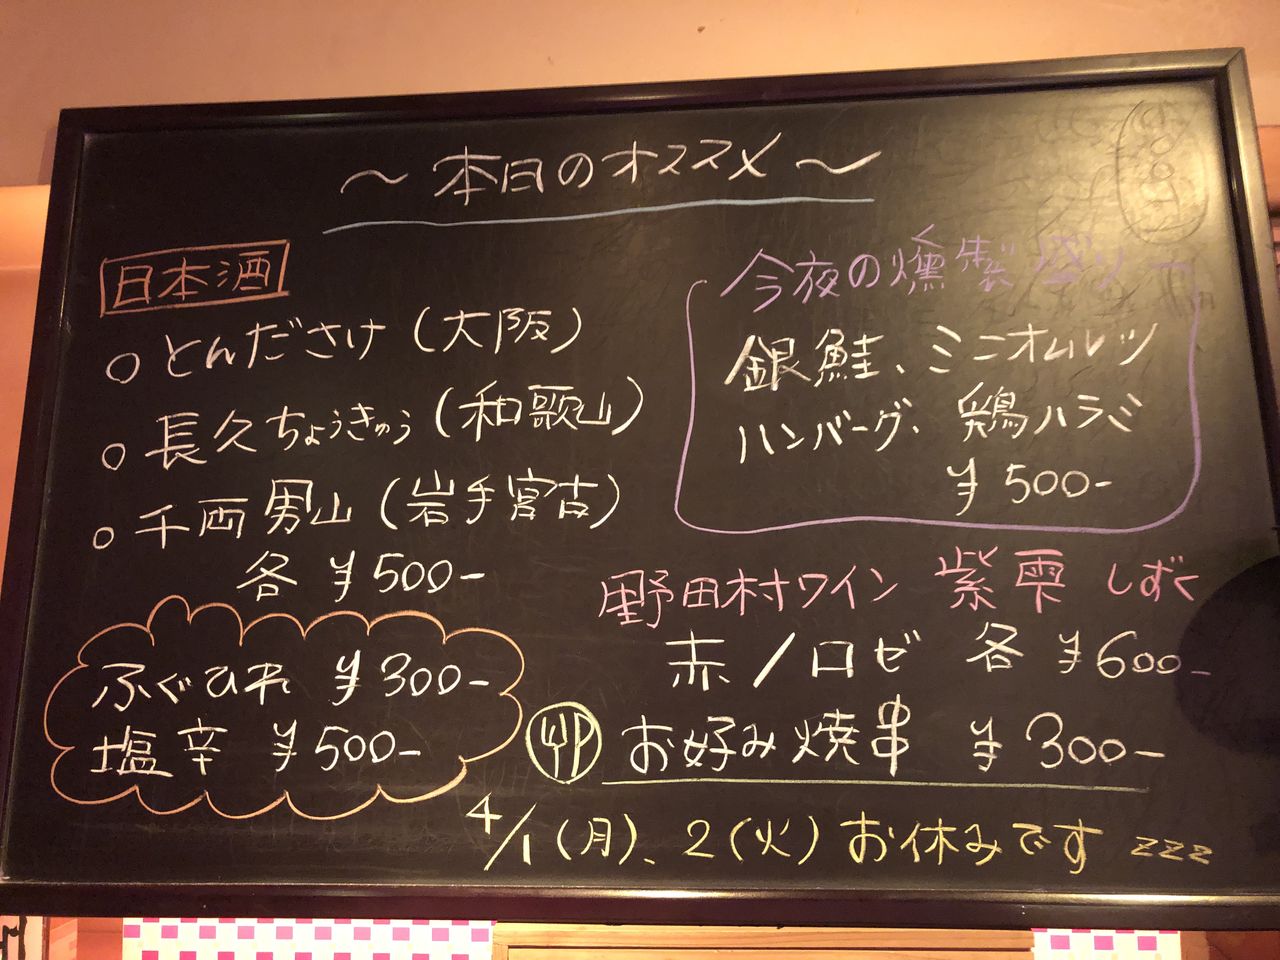 ～本日のオススメ～
日本酒
○とんださけ(大阪)
○長久ちょうきゅう(和歌山)
○千両男山(岩手宮古)
各 ¥500-
ふぐひれ ¥300-
塩辛 ¥500-
今夜の燻製盛り
銀鮭、ミニオムレツ
ハンバーグ、鶏ハラミ
¥500-
野田村ワイン 紫雫 しずく
赤/ロゼ 各 ¥600-
お好み焼串 ¥300-
4/1(月)、2(火)お休みです zzz